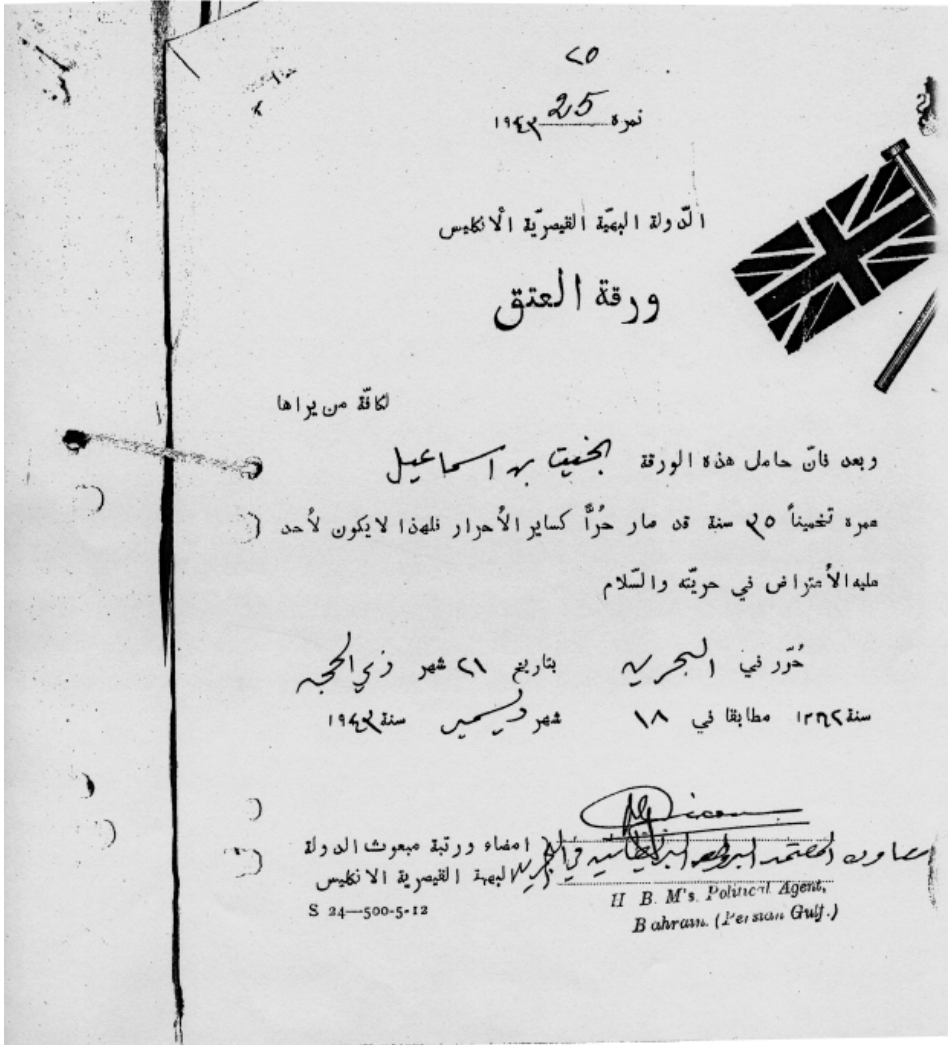 ٢٥
نمرة 25 ١٩٤٣
الدّولة البهيّة القيصريّة الْانكليس
ورقة العتق
لكافّة من يراها
وبعد فانّ حامل هذه الورقة بخيت بن اسماعيل
عمره تخميناً ٣٥ سنة قد صار حُرّاً كساير الأحرار فلهذا لايكون لأحد
عليه الأعتراض في حريّته والسّلام
حُرّر في البحرين بتاريخ ٢١ شهر ذي الحجه
سنة ١٣٦٢ مطابقا في ١٨ شهر ديسمبر سنة ١٩٤٣
معاون المعتمد البريطانيه في البحرين
امضاء ورتبة مبعوث الدولة
البهية القيصرية الانكليس
H. B. M's. Political Agent,
Bahrain. (Persian Gulf.)
S 24—500-5-12